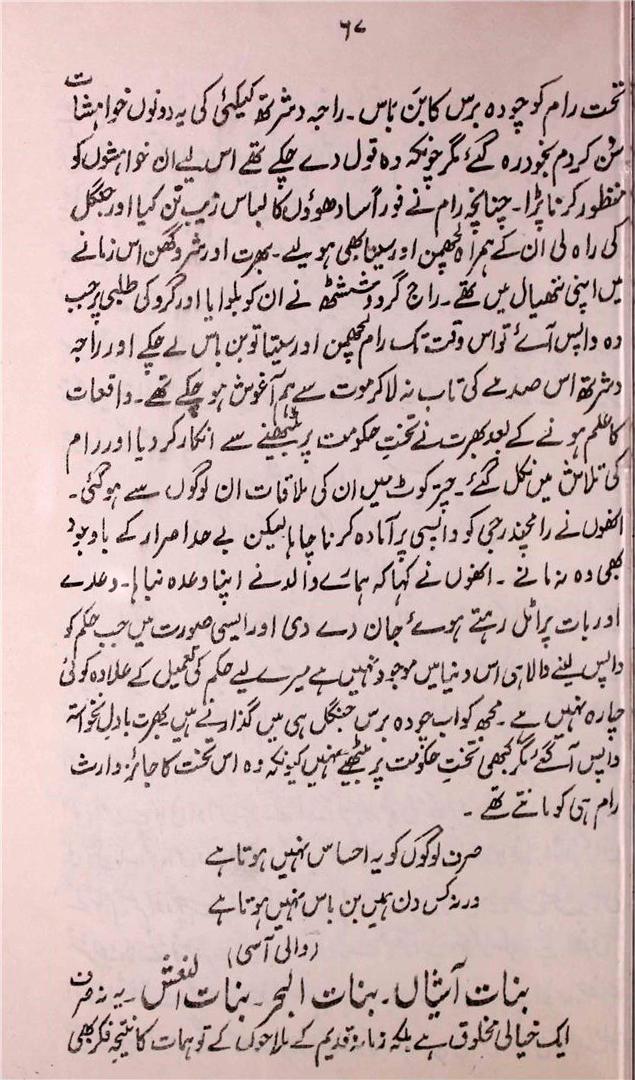 ۶۷
تخت رام کو چودہ برس کا بن باس۔ راجہ دشرتھ کیکئی کی یہ دونوں خواہشات
سن کر دم بخود رہ گئے مگر چونکہ وہ قول دے چکے تھے اس لیے ان خواہشوں کو
منظور کرنا پڑا۔ چنانچہ رام نے فوراً سادھوؤں کا لباس زیب تن کیا اور جنگل
کی راہ لی ان کے ہمراہ لچھمن اور سیتا بھی ہو لیے۔ بھرت اور شتروگھن اس زمانے
میں اپنی ننھیال میں تھے۔ راج گرو وششٹھ نے ان کو بلوایا اور گرو کی طلبی پر جب
وہ واپس آئے تو اس وقت تک رام لچھمن اور سیتا تو بن باس لے چکے اور راجہ
دشرتھ اس صدمے کی تاب نہ لا کر موت سے ہم آغوش ہو چکے تھے۔ واقعات
کا علم ہونے کے بعد بھرت نے تخت حکومت پر بیٹھنے سے انکار کر دیا اور رام
کی تلاش میں نکل گئے۔ چتر کوٹ میں ان کی ملاقات ان لوگوں سے ہو گئی۔
انھوں نے رامچندرجی کو واپسی پر آمادہ کرنا چاہا لیکن بے حد اصرار کے باوجود
بھی وہ نہ مانے۔ انھوں نے کہا کہ ہمارے والد نے اپنا وعدہ نباہا۔ وعدے
اور بات پر اٹل رہتے ہوئے جان دے دی اور ایسی صورت میں جب حکم کو
واپس لینے والا ہی اس دنیا میں موجود نہیں ہے میرے لیے حکم کی تعمیل کے علاوہ کوئی
چارہ نہیں ہے۔ مجھ کو اب چودہ برس جنگل ہی میں گذارنے ہیں۔ بھرت بادل نخواستہ
واپس آ گئے مگر کبھی تخت حکومت پر بیٹھے نہیں کیونکہ وہ اس تخت کا جائز وارث
رام ہی کو مانتے تھے۔
صرف لوگوں کو یہ احساس نہیں ہوتا ہے
ورنہ کس دن ہمیں بن باس نہیں ہوتا ہے
(والی آسی)
بنات آیشاں۔ بنات البحر۔ بنات النعش۔ یہ نہ صرف
ایک خیالی مخلوق ہے بلکہ زمانۂ قدیم کے ملاحوں کے توہمات کا نتیجۂ فکر بھی